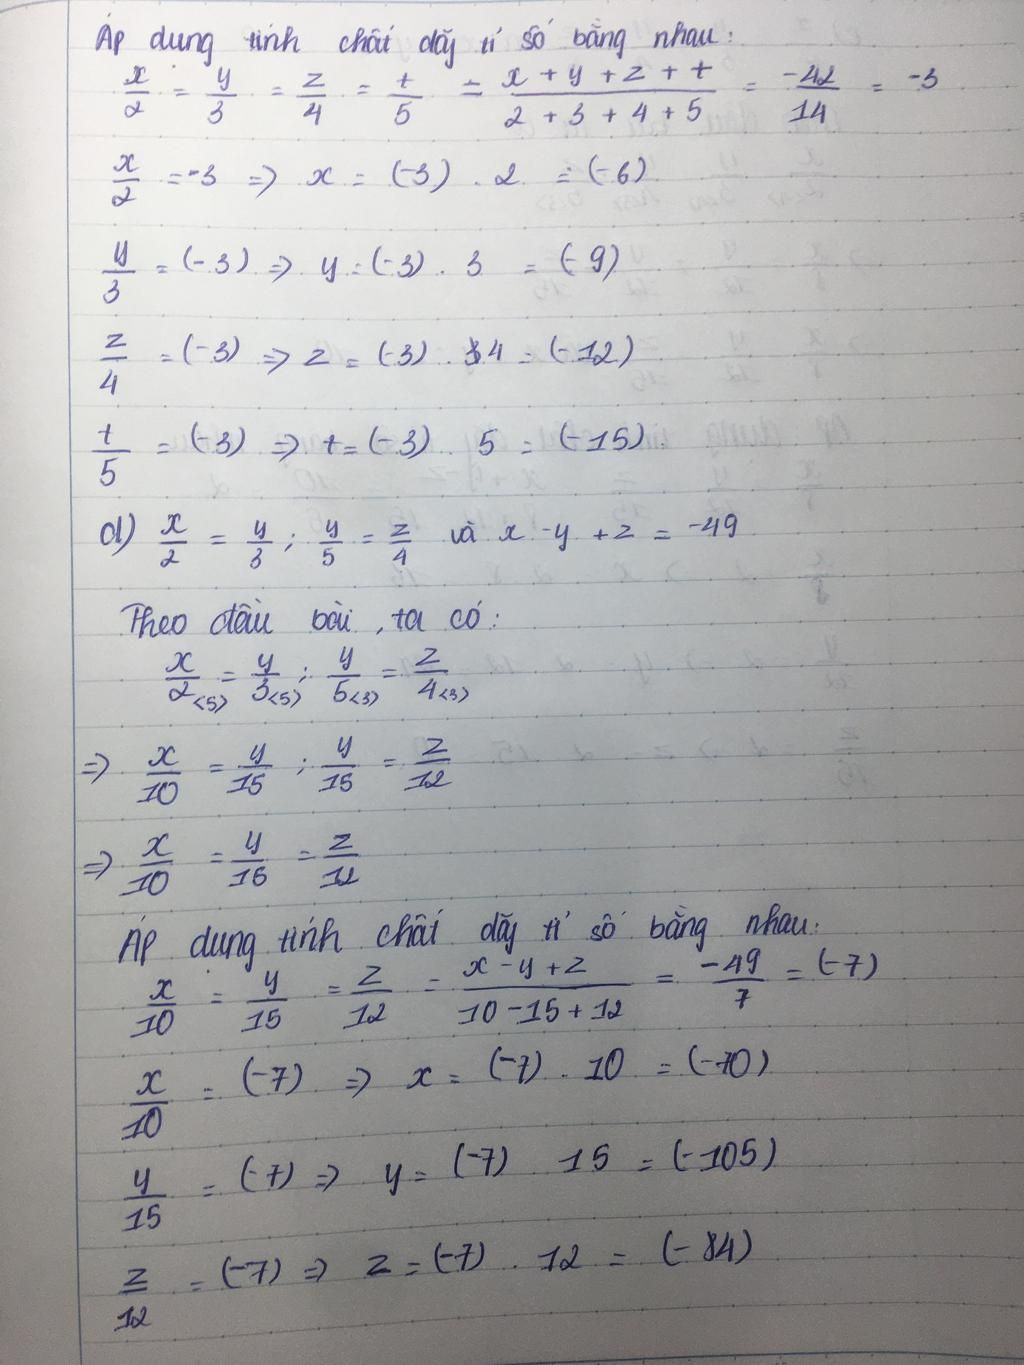 Áp dụng tính chất dãy tỉ số bằng nhau:
x/2 = y/3 = z/4 = t/5 = (x + y + z + t)/(2 + 3 + 4 + 5) = -42/14 = -3
x/2 = -3 => x = (-3) . 2 = (-6)
y/3 = (-3) => y = (-3) . 3 = (-9)
z/4 = (-3) => z = (-3) . 4 = (-12)
t/5 = (-3) => t = (-3) . 5 = (-15)
d) x/2 = y/3 ; y/5 = z/4 và x - y + z = -49
Theo đầu bài, ta có:
x/2<5> = y/3<5> ; y/5<3> = z/4<3>
=> x/10 = y/15 ; y/15 = z/12
=> x/10 = y/15 = z/12
Áp dụng tính chất dãy tỉ số bằng nhau:
x/10 = y/15 = z/12 = (x - y + z)/(10 - 15 + 12) = -49/7 = (-7)
x/10 = (-7) => x = (-7) . 10 = (-70)
y/15 = (-7) => y = (-7) . 15 = (-105)
z/12 = (-7) => z = (-7) . 12 = (-84)